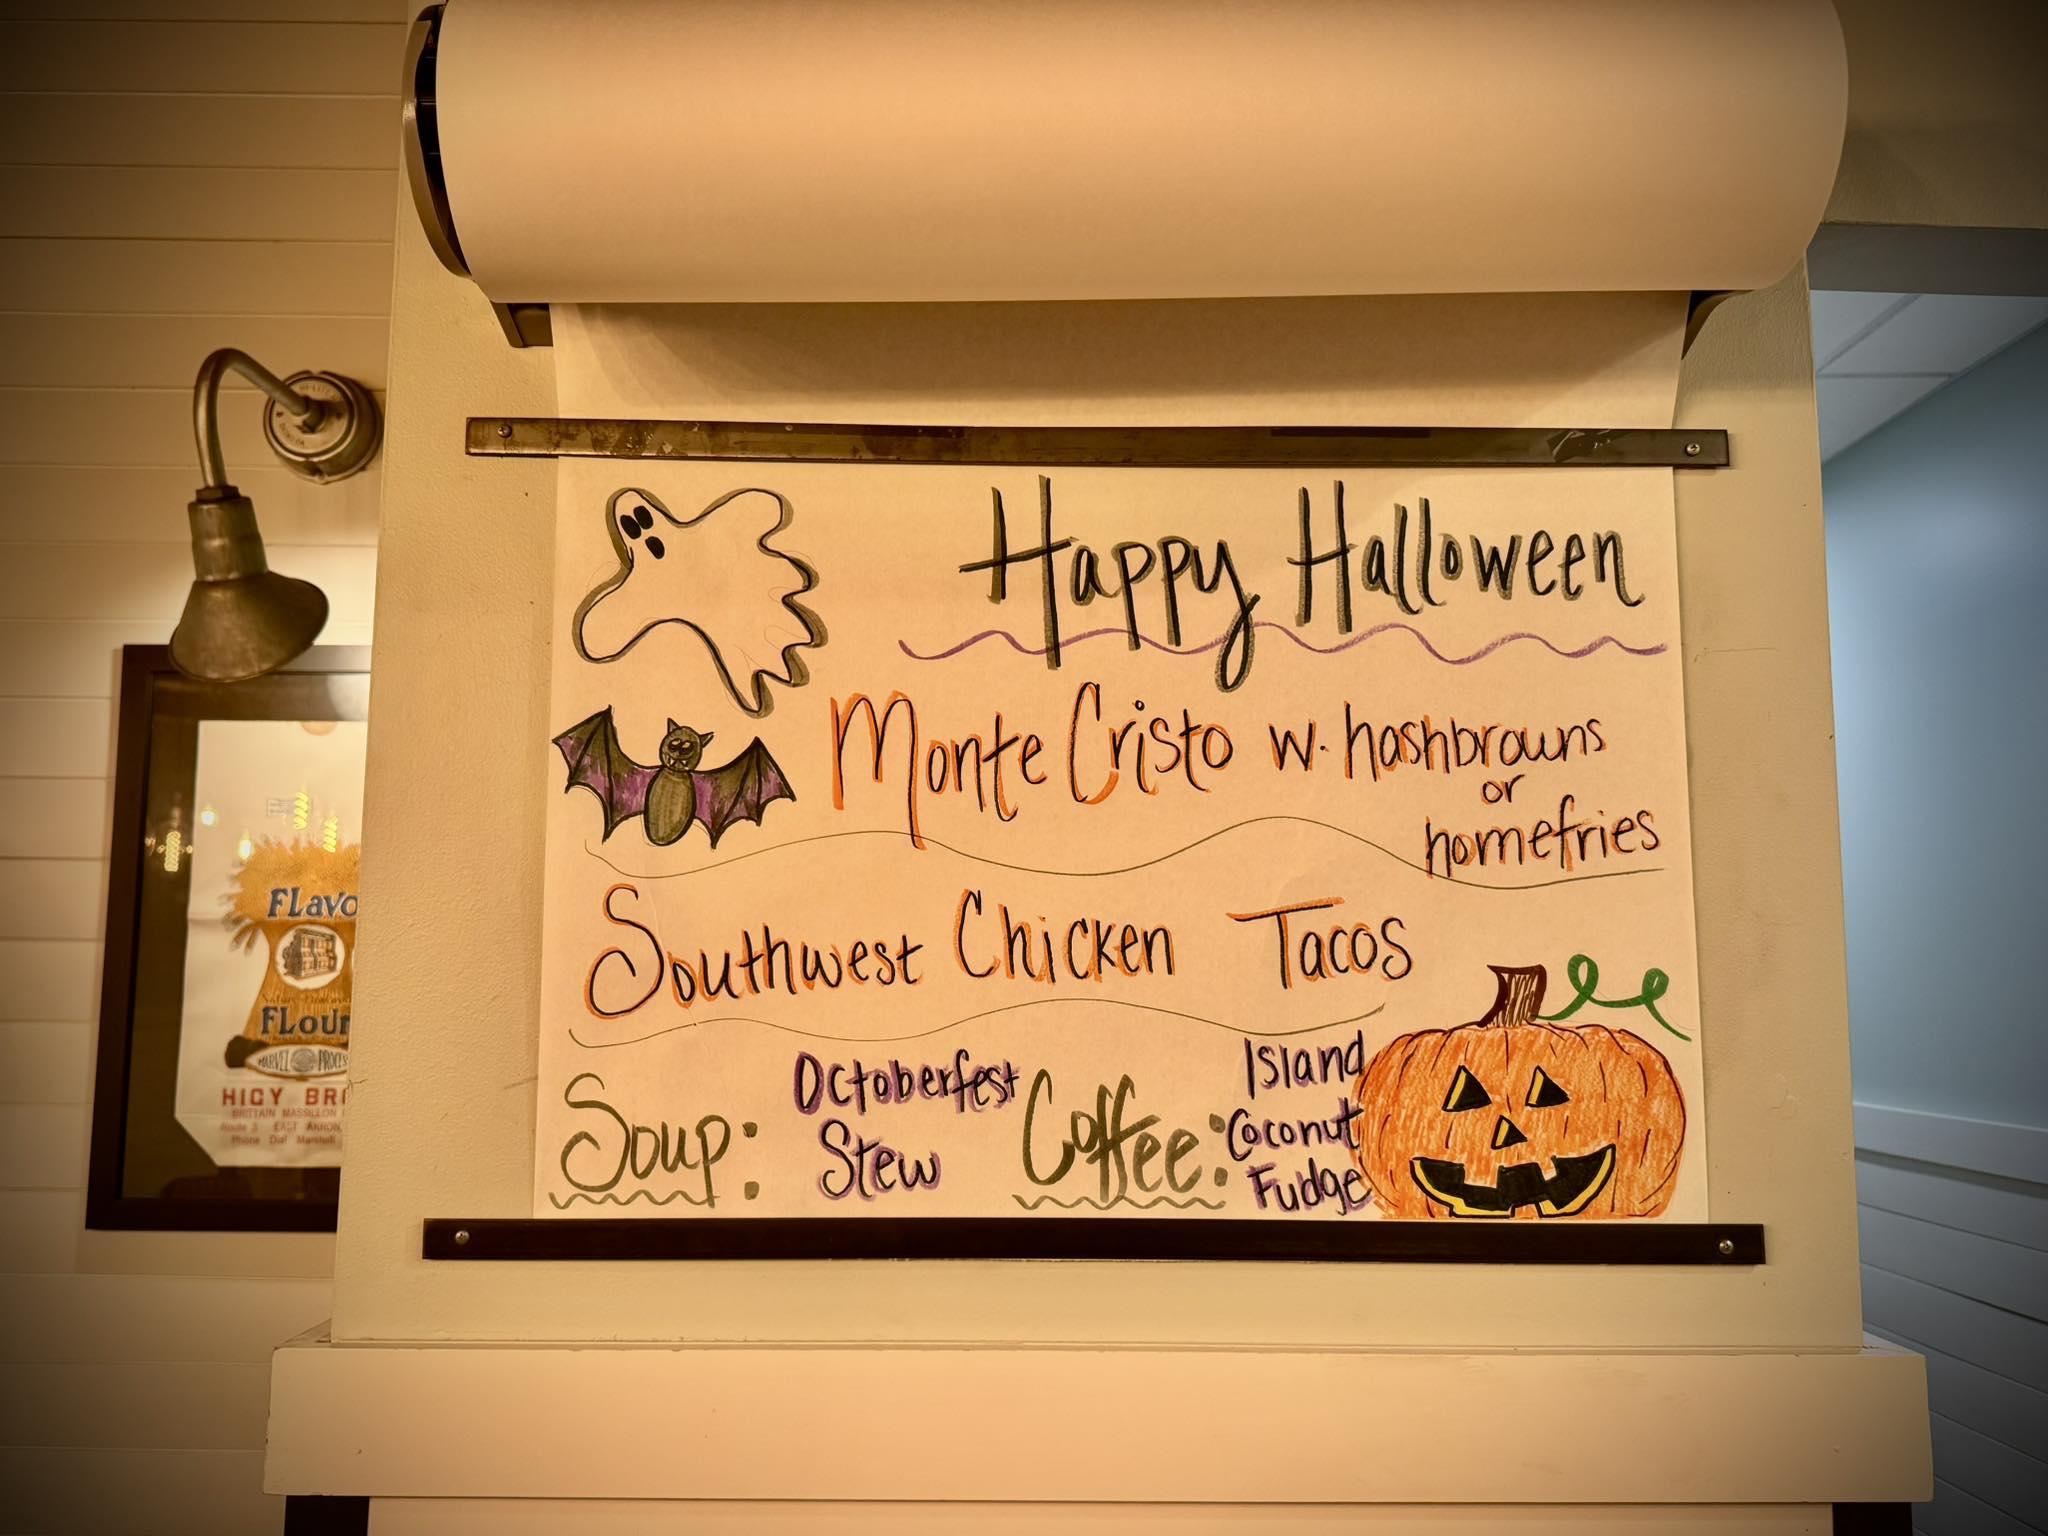 Happy Halloween
Monte Cristo w. hashbrowns
or
homefries
Southwest Chicken Tacos
Soup: Octoberfest
Stew
Coffee: Island
Coconut
Fudge
FLavo
FLour
MARVEL PROCES
HIGY BR
BRITTAIN MASSILLON
Route 3 EAST AKRON,
Phone Dial Marshall